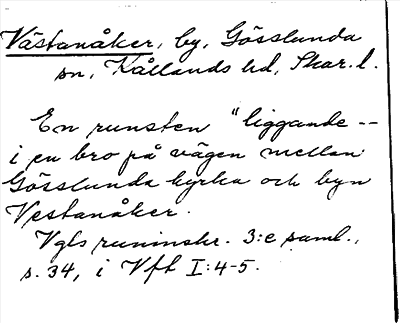 Västanåker, by, Gösslunda
sn, Kållands hd, Skar. l.
En runsten "liggande --
i en bro på vägen mellan
Gösslunda kyrka och byn
Vestanåker.
Vgls runinskr. 3:e saml.,
s. 34, i Vft I:4-5.